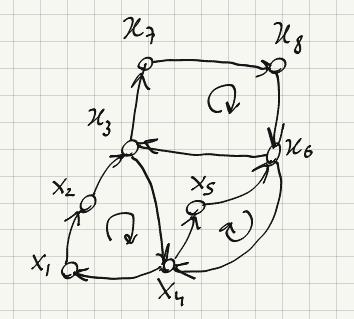 x7 x8
x3 x6
x2 x5
x1 x4